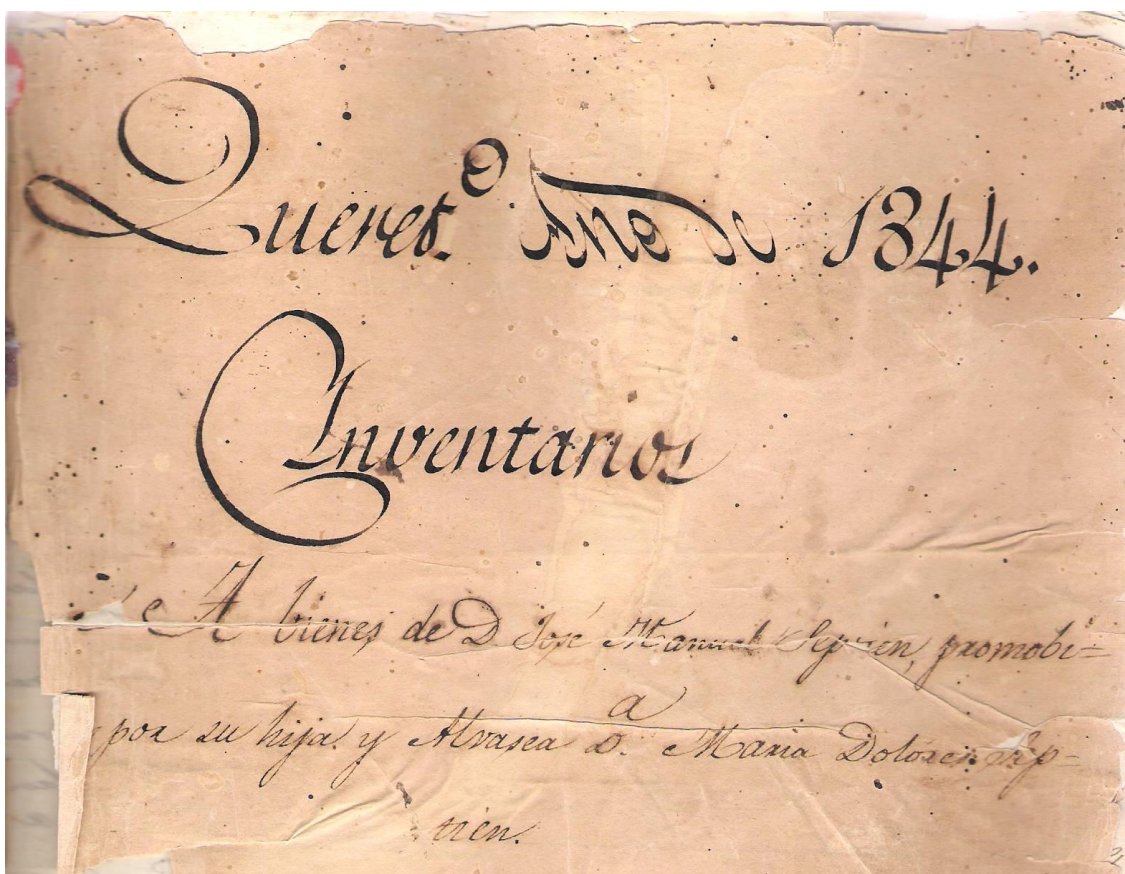 Queret.º Año de 1844.
Inventarios
A bienes de D José Manuel Septien, promobi=
por su hija y Alvasea D.ª Maria Dolores Sep=
tien.